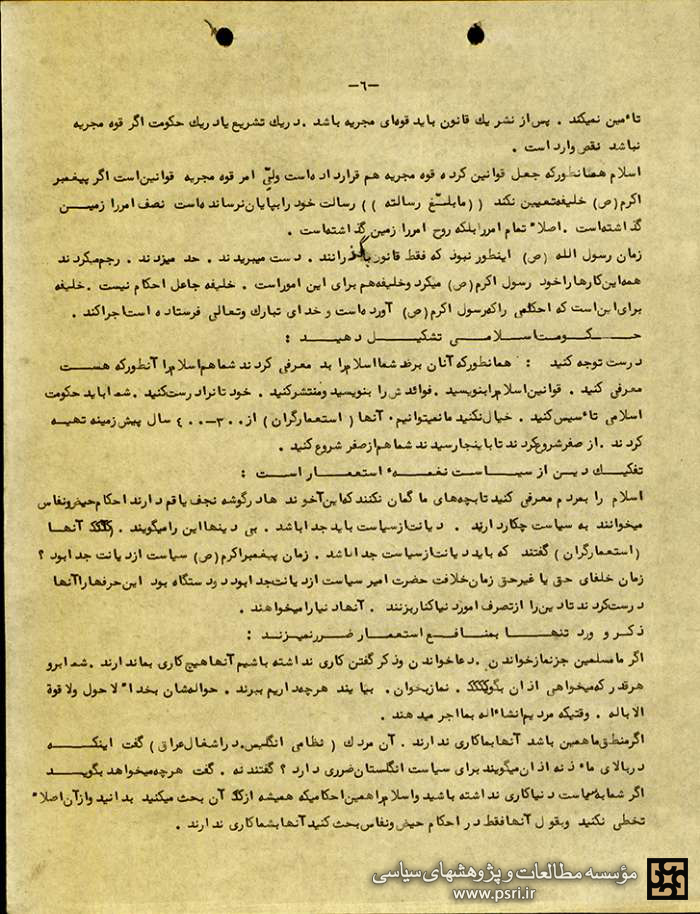 -٦-
تاٴمین نمیکند . پس از نشر یك قانون باید قوه‌ای مجریه باشد . در یك تشریع یا در یك حکومت اگر قوه مجریه
نباشد نقص وارد است .
اسلام همانطورکه جعل قوانین کرده قوه مجریه هم قرار داده‌است ولیّ امر قوه مجریه قوانین است اگر پیغمبر
اکرم (ص) خلیفه‌تعیین نکند (( مابلّغ رسالته )) رسالت خود را بپایان نرسانده‌است نصف امر را زمین
گذاشته‌است . اصلاً تمام امر را بلکه روح امر را زمین گذاشته‌است .
زمان رسول الله (ص) اینطور نبود که فقط قانون بگذرانند . دست میبریدند . حد میزدند . رجم میکردند
همه‌این کارها را خود رسول اکرم (ص) میکرد وخلیفه‌هم برای این امور است . خلیفه جاعل احکام نیست . خلیفه
برای این است که احکامی راکه رسول اکرم (ص) آورده‌است و خدای تبارك وتعالی فرستاده است اجرا کند .
حکومت اسلامی تشکیل دهید :
درست توجه کنید : همانطورکه آنان برضد شما اسلام را بد معرفی کردند شما هم اسلام را آنطورکه هست
معرفی کنید . قوانین اسلام را بنویسید . فوائدش را بنویسید ومنتشرکنید . خودتانرا درست کنید . شما باید حکومت
اسلامی تاٴسیس کنید . خیال نکنید ما نمیتوانیم . آنها ( استعمارگران ) از ٣٠٠-٤٠٠ سال پیش زمینه تهیه
کردند . از صفر شروع کردند تا باینجا رسیدند شما هم از صفر شروع کنید .
تفکیك دین از سیاست نغمهٴ استعمار است :
اسلام را بمردم معرفی کنید تا بچه‌های ما گمان نکنند که این آخوندها در گوشه نجف یا قم دارند احکام حیض ونفاس
میخوانند به سیاست چکار دارند . دیانت از سیاست باید جدا باشد . بی دینها این را میگویند . آنها
( استعمارگران ) گفتند که باید دیانت از سیاست جدا باشد . زمان پیغمبر اکرم (ص) سیاست از دیانت جدا بود ؟
زمان خلفای حق یا غیر حق زمان خلافت حضرت امیر سیاست از دیانت جدا بود دو دستگاه بود این حرفها را آنها
درست کردند تا دین را از تصرف امور دنیا کنار بزنند . آنها دنیا را میخواهند .
ذکر و ورد تنها بمنافع استعمار ضرر نمیزند :
اگر ما مسلمین جز نماز خواندن . دعا خواندن وذکر گفتن کاری نداشته باشیم آنها هیچ کاری بما ندارند . شما برو
هرقدر که میخواهی اذان بگو . نماز بخوان . بیایند هرچه داریم ببرند . حواله‌شان بخدا لا حول ولا قوة
الا باله . وقتیکه مردیم انشاٴاله بما اجر میدهند .
اگر منطق ما همین باشد آنها بما کاری ندارند . آن مردك ( نظامی انگلیس در اشغال عراق ) گفت اینکه
در بالای ماٴذنه اذان میگویند برای سیاست انگلستان ضرری دارد ؟ گفتند نه . گفت هرچه میخواهد بگوید
اگر شما به سیاست دنیا کاری نداشته باشید واسلام را همین احکامیکه همیشه از آن بحث میکنید بدانید واز آن اصلاً
تخطی نکنید وبقول آنها فقط در احکام حیض ونفاس بحث کنید آنها بشما کاری ندارند .
مؤسسه مطالعات و پژوهشهای سیاسی
www.psri.ir